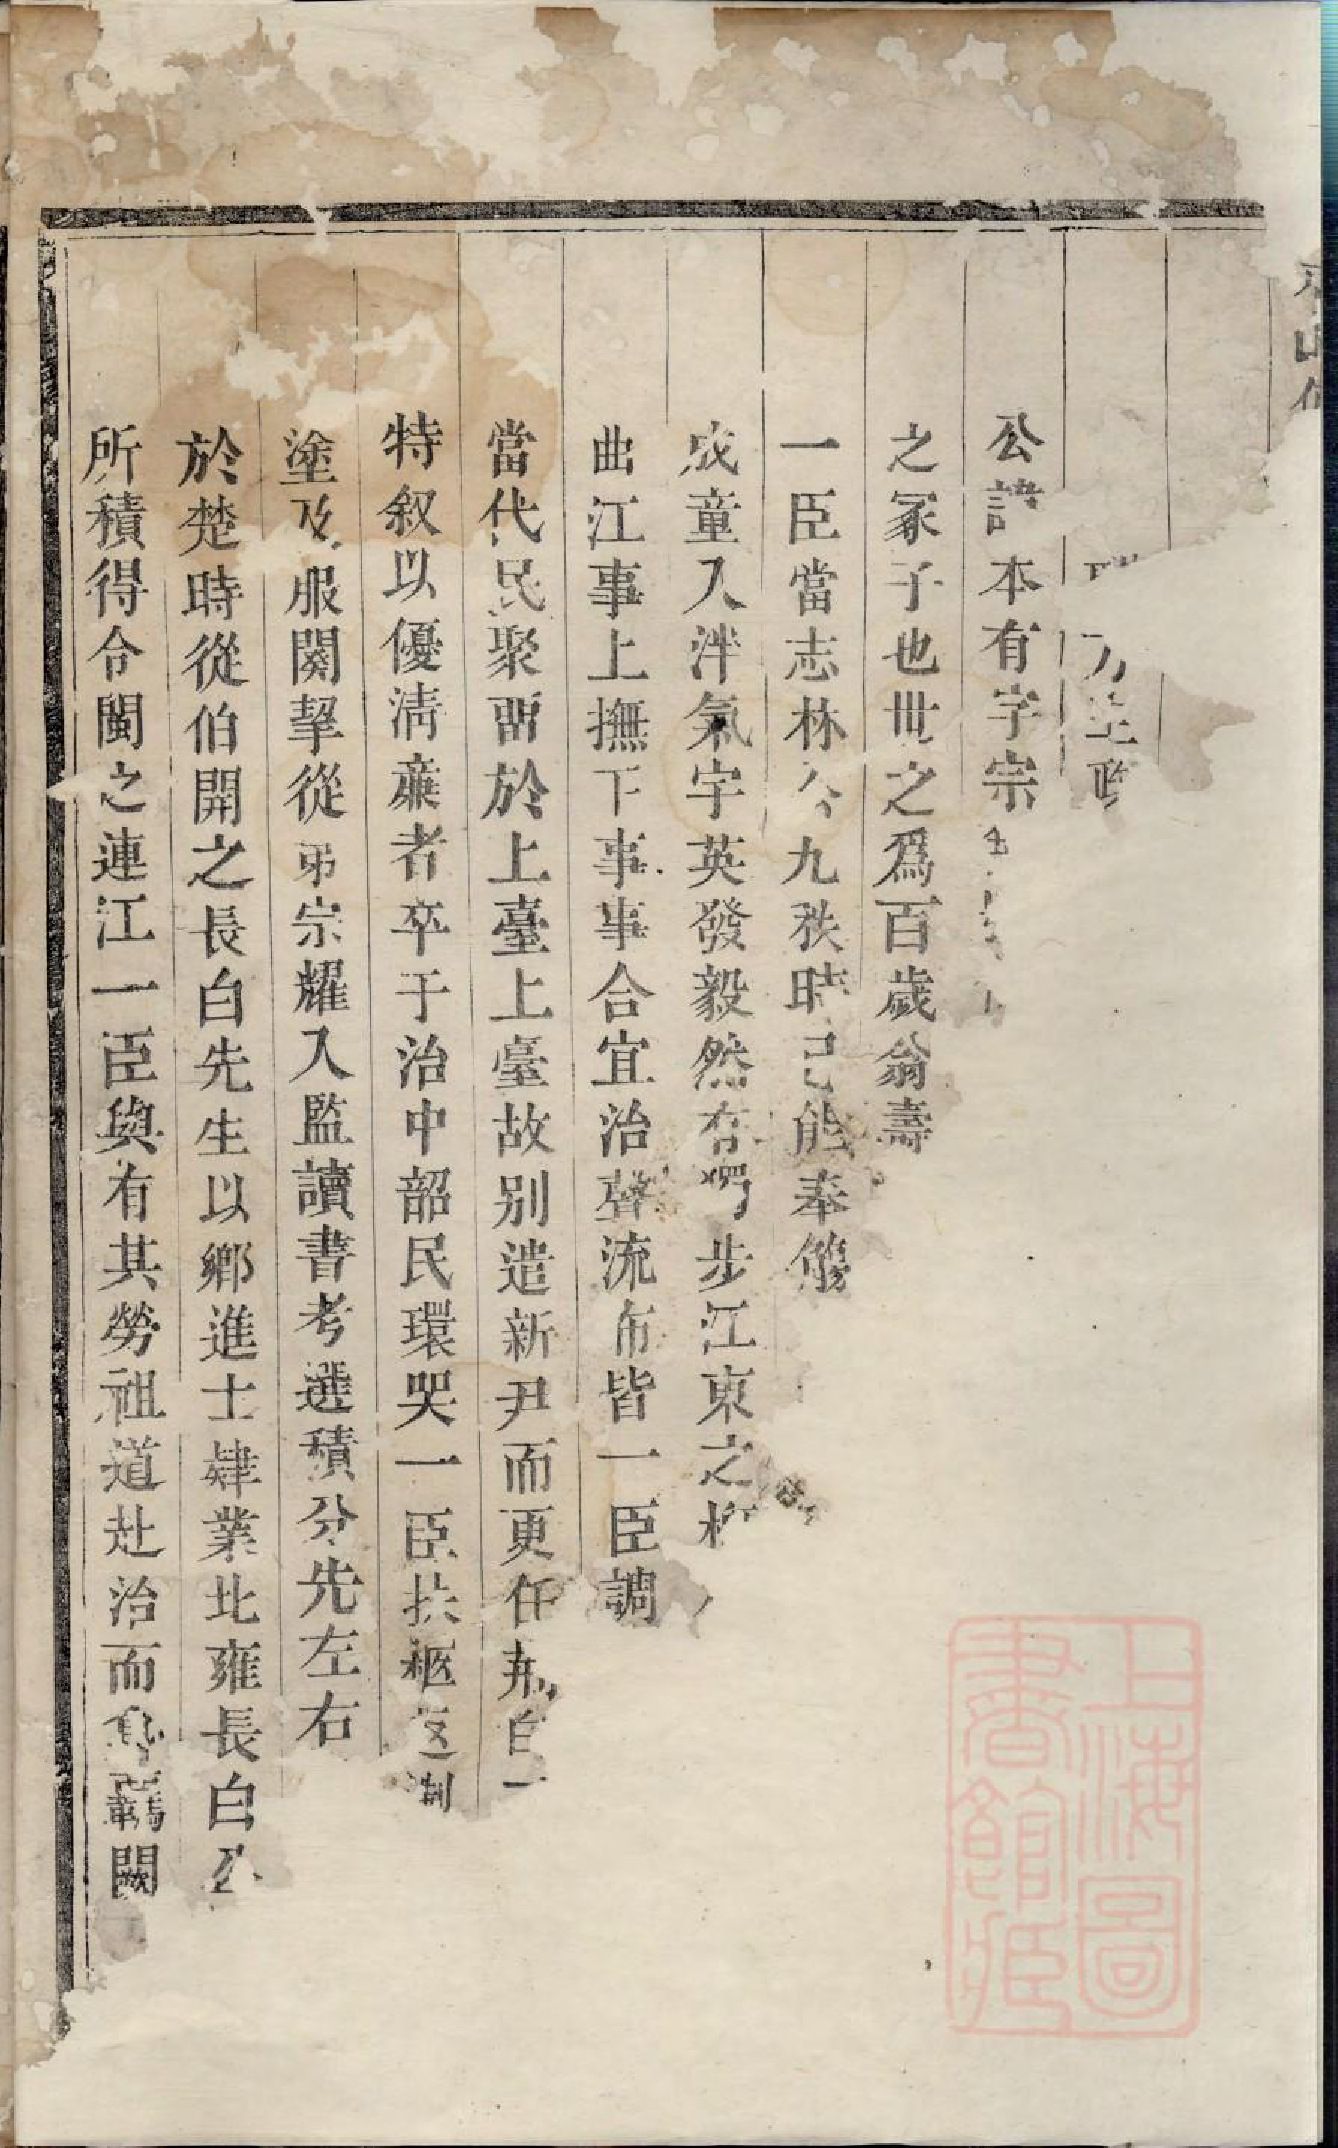 公諱本有字宗
之冢子也世之爲百歲翁壽
一臣當志林公九秩時已能奉觴
成童入泮氣宇英發毅然有獨步江東之概
曲江事上撫下事事合宜治聲流布皆一臣調
當代民聚留於上臺上臺故别遣新尹而更任邢自一
特叙以優淸亷者卒于治中韶民環哭一臣扶柩返
塗及服闋挈從弟宗耀入監讀書考選積分先左右
於楚時從伯開之長白先生以鄉進士肄業北雍長白公
所積得令閩之連江一臣與有其勞祖道赴治而身羈闕
上海圖
書館藏